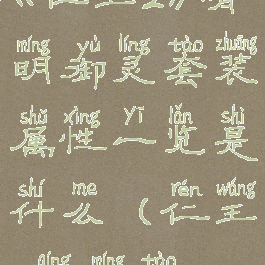 míng yù líng tào zhuāng
明御灵套装
shǔ xìng yī lǎn shì
属性一览是
shí me rén wáng
什么（仁王
qíng míng tào